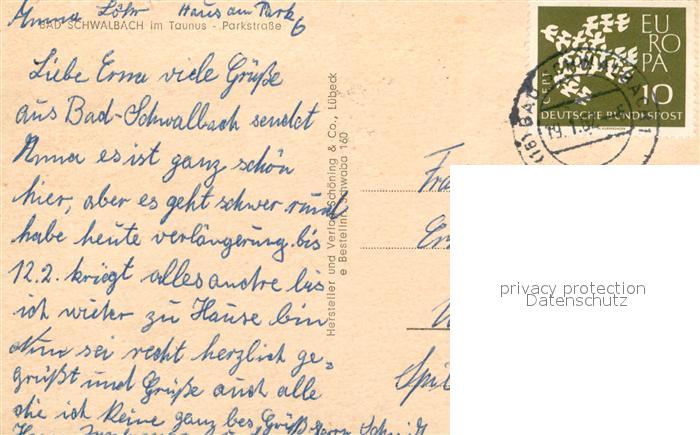 Anna Löhr Haus am Park
6
BAD SCHWALBACH im Taunus - Parkstraße
Liebe Erna viele Grüße
aus Bad-Schwalbach sendet
Anna es ist ganz schön
hier, aber es geht schwer rund
habe heute verlängerung bis
12.2. kriegt alles andre bis
ich wieter zu Hause bin
Nun sei recht herzlich ge-
grüßt und Grüße auch alle
die ich kenne ganz bes Grüß
Hersteller und Verlag Schöning & Co., Lübeck
e Bestellnr. Schwaba 160
EUROPA
CEPT
10
DEUTSCHE BUNDESPOST
(16) BAD SCHWALBACH 1
19.1.
privacy protection
Datenschutz